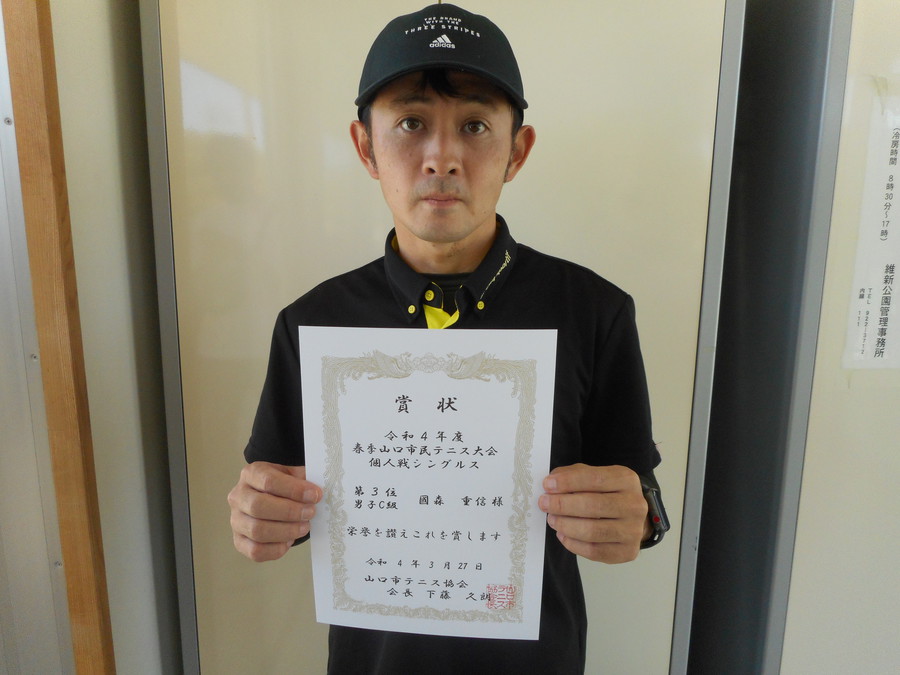 THE BRAND
WITH THE
THREE STRIPES
adidas
賞 状
令和4年度
春季山口市民テニス大会
個人戦シングルス
第3位
男子C級
國森 重信 様
栄誉を讃えこれを賞します
令和 4 年 3 月 27 日
山口市テニス協会
会長 下藤 久朗
(冷房時間 8時30分~17時)
維新公園管理事務所
TEL
内線